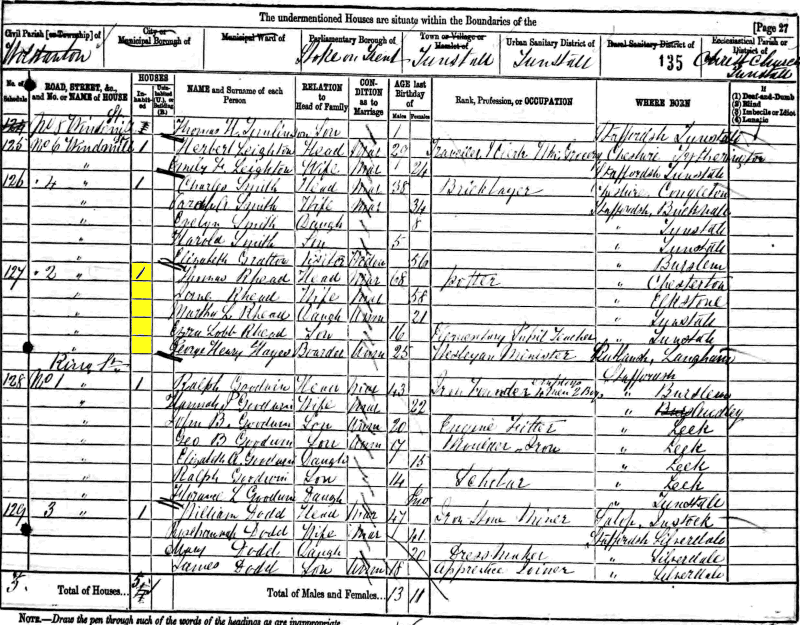 The undermentioned Houses are situate within the Boundaries of the
[Page 27
Civil Parish [or Township] of
Wolstanton
City or Municipal Borough of
Municipal Ward of
Parliamentary Borough of
Stoke on Trent
Town or Village or Hamlet of
Tunstall
Urban Sanitary District of
Tunstall
Rural Sanitary District of
135
Ecclesiastical Parish or District of
Christ Church Tunstall
No. of Schedule
ROAD, STREET, &c., and No. or NAME of HOUSE
HOUSES
In-habited
Unin-habited (U.), or Building (B.)
NAME and Surname of each Person
RELATION to Head of Family
CON-DITION as to Marriage
AGE last Birthday of
Males
Females
Rank, Profession, or OCCUPATION
WHERE BORN
If
(1) Deaf-and-Dumb
(2) Blind
(3) Imbecile or Idiot
(4) Lunatic
Thomas H. Son 1 Staffordsh Tunstall
125 No 6 Windmill 1 Herbert Leighton Head Mar 29 Traveller Cheshire
" Emily F. Leighton Wife Mar 24 Staffordsh Tunstall
126 " 4 " 1 Charles Smith Head Mar 38 Bricklayer Congleton
" Smith Wife Mar 34 Staffordsh
" Evelyn Smith Daugh 8 " Tunstall
" Harold Smith Son 5 " Tunstall
" Elizabeth Gratton Visitor 56 " Burslem
127 " 2 " 1 Thomas Rhead Head Mar 68 Potter " Chesterton
" Rhead Wife Mar 58 " Elkstone
" Martha L Rhead Daugh Unm 21 " Tunstall
" Ezra Lobb Rhead Son 16 Elementary Pupil Teacher " Tunstall
" George Henry Hayes Boarder Unm 25 Wesleyan Minister Rutland, Langham
King St
128 No 1 " 1 Ralph Goodwin Head Mar 43 Iron Founder employs 4 Men 2 Boys Staffordsh " Burslem
" Hannah P Goodwin Wife Mar 22 "
" John B. Goodwin Son Unm 20 Engine Fitter " Leek
" Geo B Goodwin Son Unm 17 Moulder Iron " Leek
" Elizabeth A Goodwin Daugh 15 " Leek
" Ralph Goodwin Son 14 Scholar " Leek
" Florance L Goodwin Daugh " Tunstall
129 " 3 " 1 William Dodd Head Mar 47 Iron Stone Miner Salop,
" Dodd Wife Mar 41 Staffordsh Silverdale
" Mary Dodd Daugh 20 Dressmaker " Silverdale
" James Dodd Son Unm 18 Apprentice Joiner " Silverdale
5 Total of Houses... 5 Total of Males and Females... 13 11
NOTE.—Draw the pen through such of the words of the headings as are inappropriate.